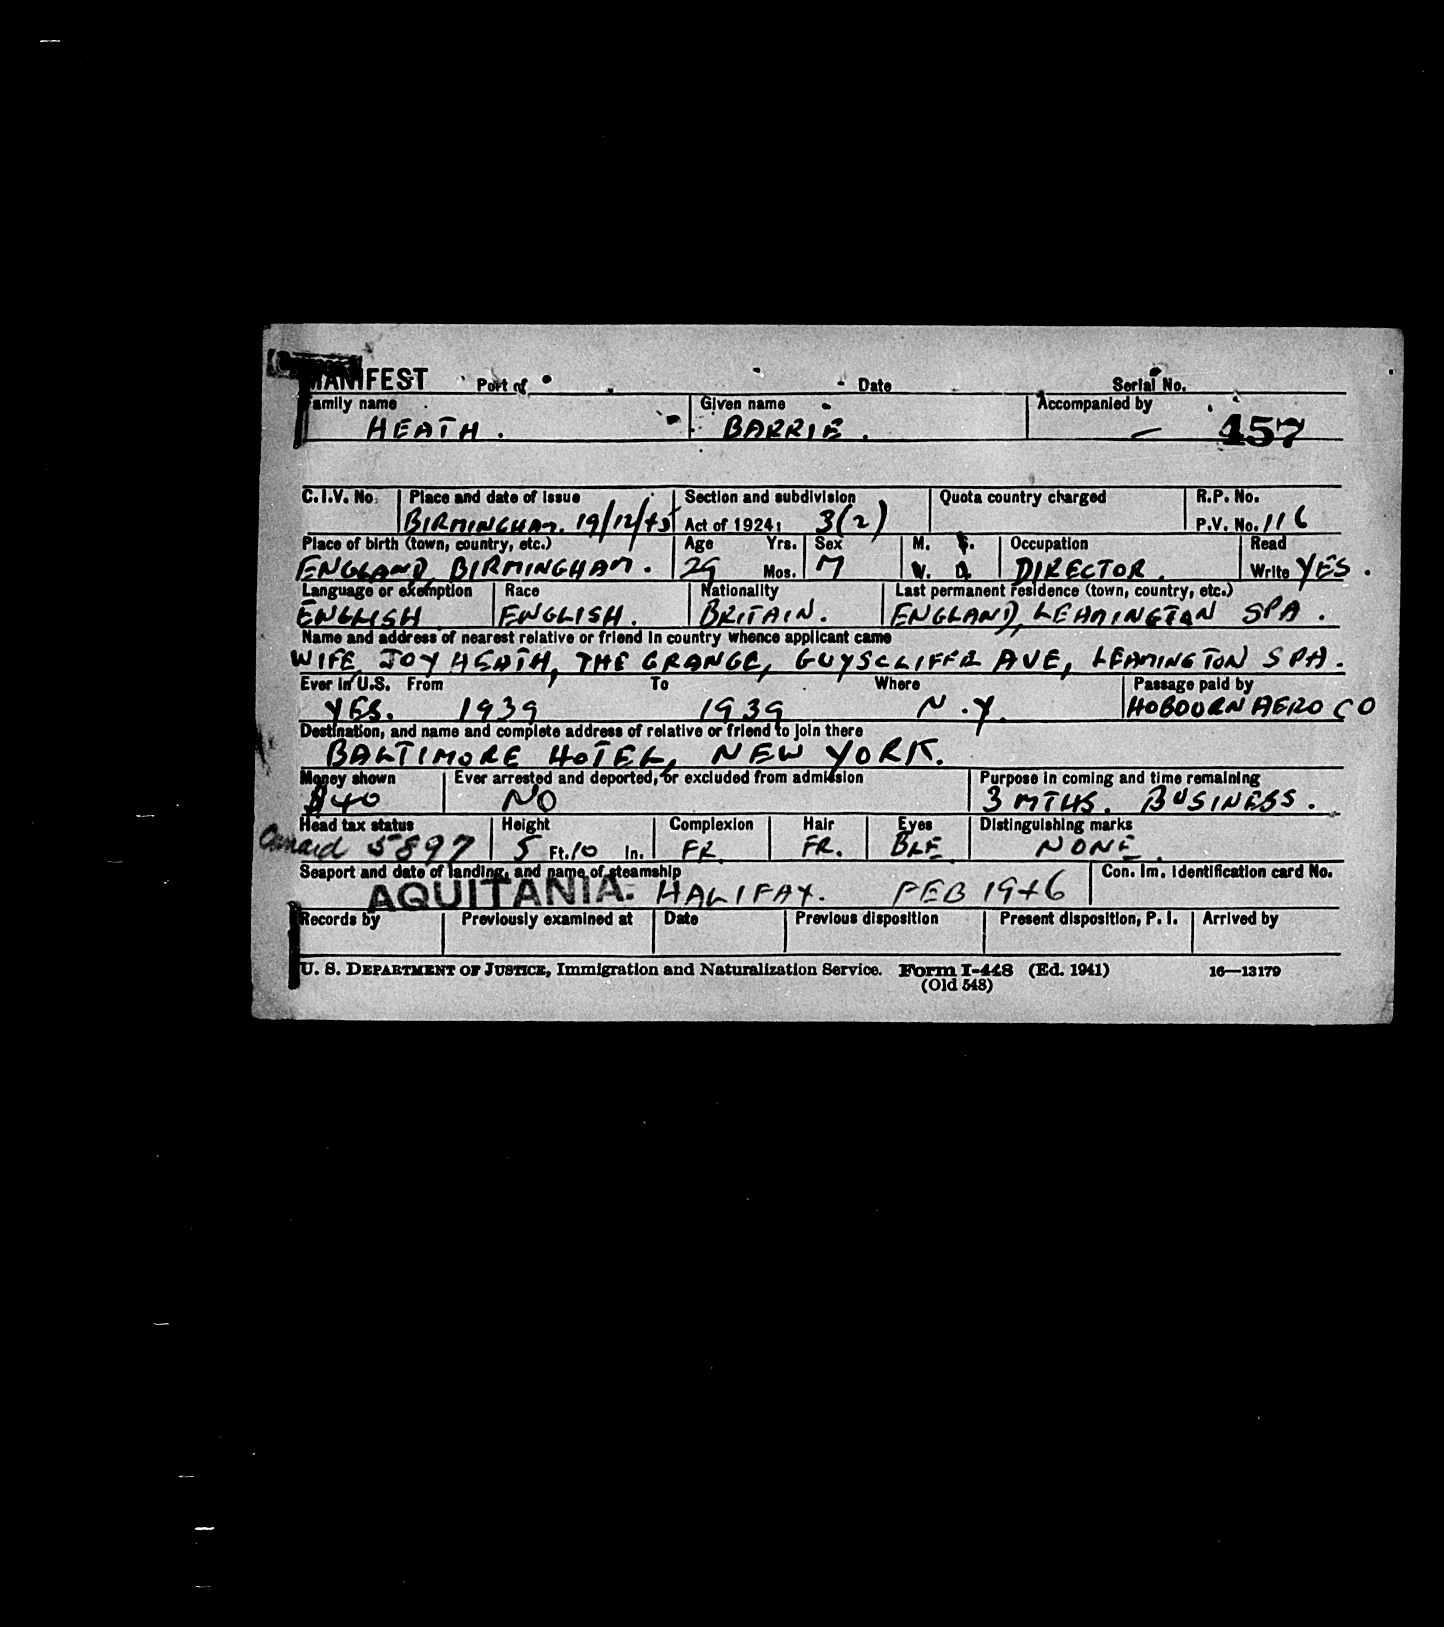 MANIFEST Port of Date Serial No.
Family name Given name Accompanied by
HEATH. BARRIE. — 457
C.I.V. No. Place and date of issue Section and subdivision Quota country charged R.P. No.
BIRMINGHAM. 19/12/45 Act of 1924: 3(2) P.V. No. 116
Place of birth (town, country, etc.) Age Yrs. Sex M. S. Occupation Read
ENGLAND, BIRMINGHAM. 29 Mos. M W. D. DIRECTOR. Write YES.
Language or exemption Race Nationality Last permanent residence (town, country, etc.)
ENGLISH ENGLISH. BRITAIN. ENGLAND, LEAMINGTON SPA.
Name and address of nearest relative or friend in country whence applicant came
WIFE, JOY HEATH, THE GRANGE, GUYSCLIFFE AVE, LEAMINGTON SPA.
Ever in U.S. From To Where Passage paid by
YES. 1939 1939 N.Y. HOBOURN AERO CO
Destination, and name and complete address of relative or friend to join there
BALTIMORE HOTEL, NEW YORK.
Money shown Ever arrested and deported, or excluded from admission Purpose in coming and time remaining
$40 NO 3 MTHS. BUSINESS.
Head tax status Height Complexion Hair Eyes Distinguishing marks
5897 5 Ft. 10 In. FR. FR. BLE NONE.
Seaport and date of landing, and name of steamship Con. Im. Identification card No.
AQUITANIA. HALIFAX. FEB 1946
Records by Previously examined at Date Previous disposition Present disposition, P. I. Arrived by
U. S. DEPARTMENT OF JUSTICE, Immigration and Naturalization Service. Form I-448 (Ed. 1941) 16—13179
(Old 548)